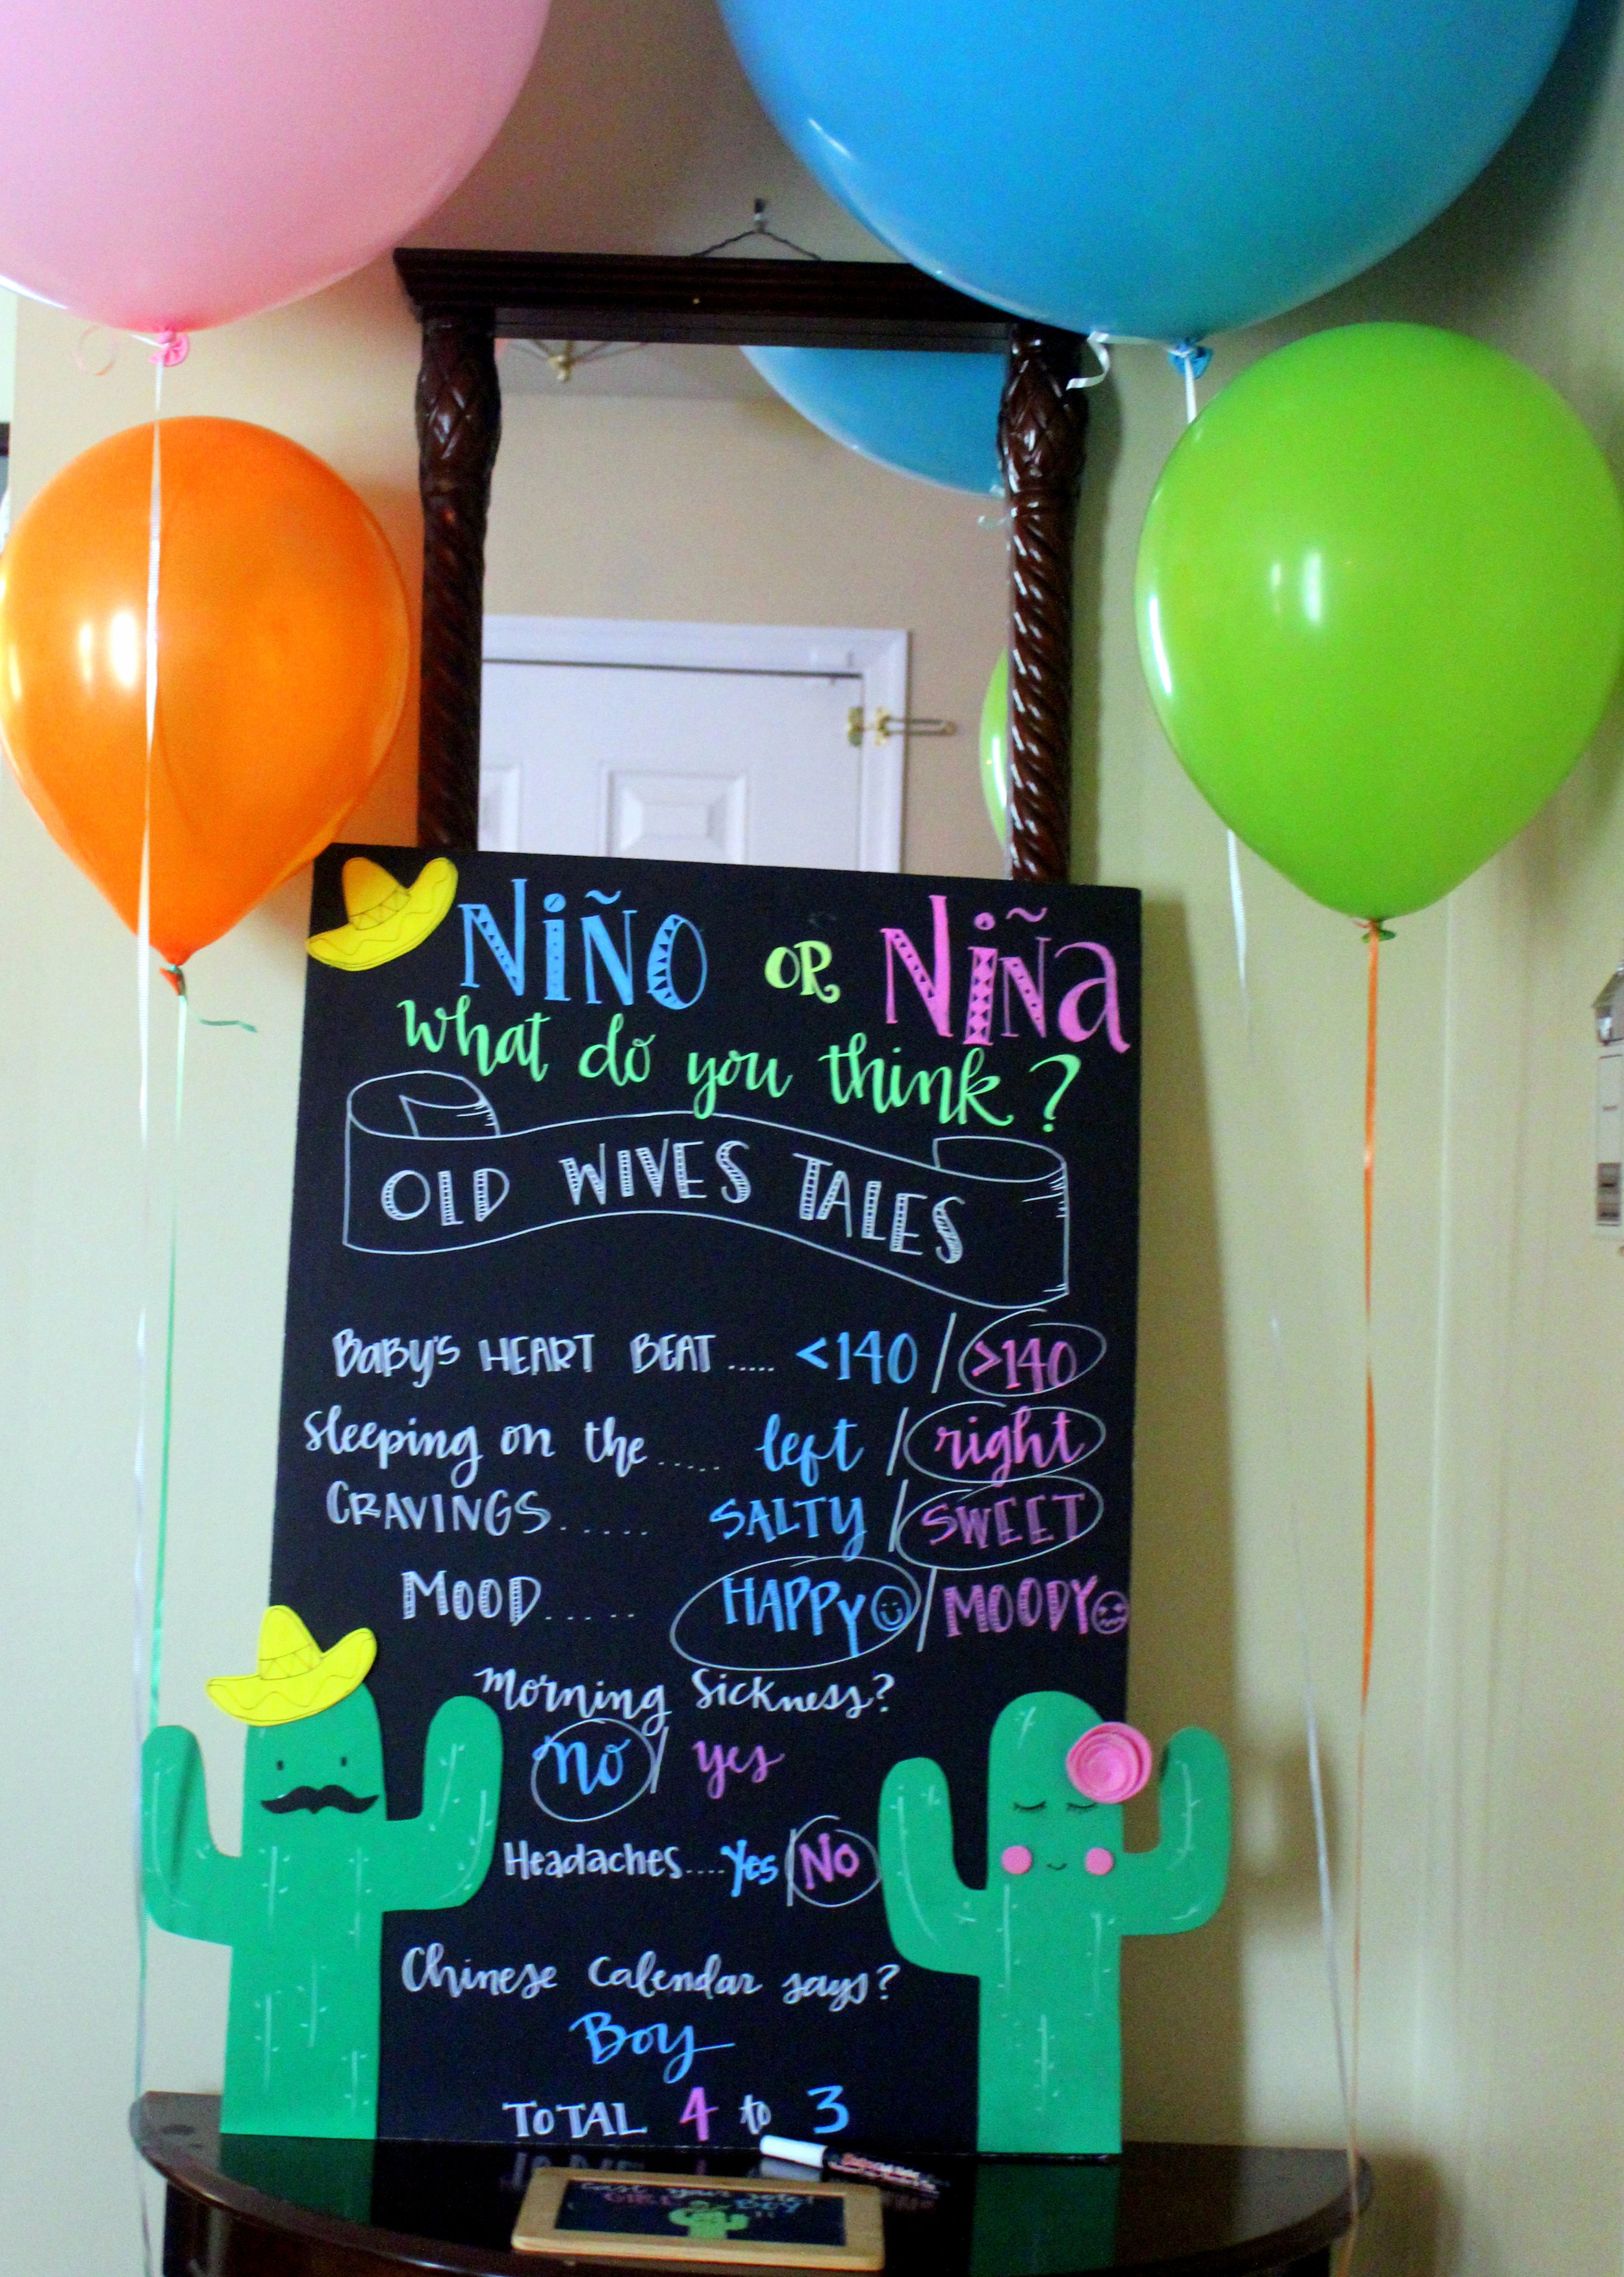 NiÑO OR NiÑa
What do you think?
OLD WIVES TALES
BaBY'S HEART BEAT ..... <140 / >140
Sleeping on the ..... left / right
CRAVINGS..... SALTY / SWEET
MOOD..... HAPPY / MOODY
Morning Sickness?
no / yes
Headaches....Yes / No
Chinese Calendar says?
Boy
ToTAL 4 to 3
cast your vote!
GIRL or BOY